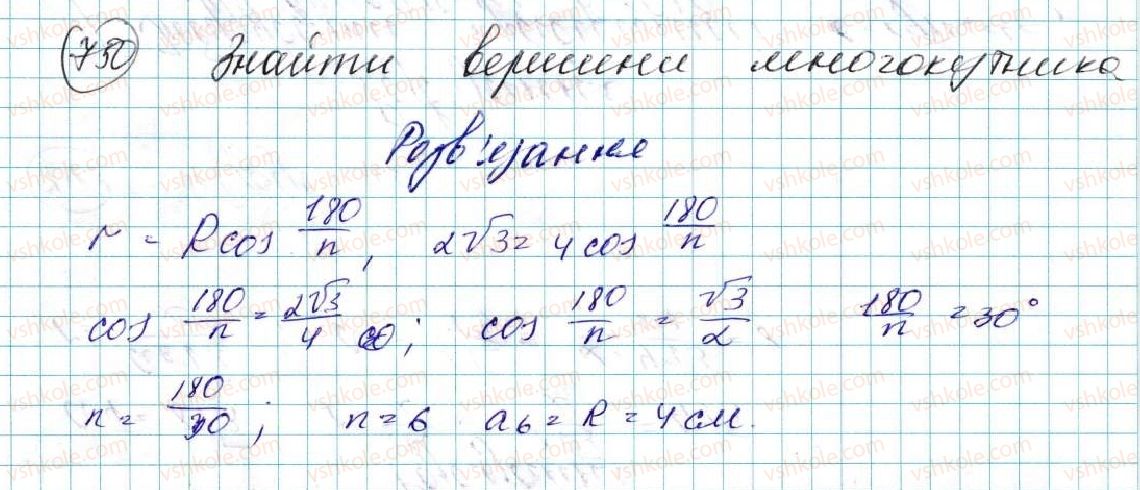 750 Знайти вершини многокутника
Розв'язання
r = R cos 180/n, 2√3 = 4 cos 180/n
cos 180/n = 2√3/4; cos 180/n = √3/2 180/n = 30°
n = 180/30; n = 6 a₆ = R = 4 см.